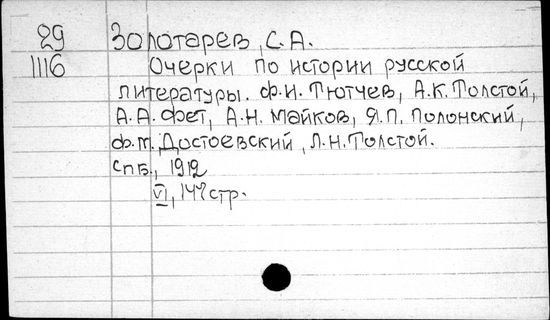 29 Золотарев, С.А.
1116 Очерки по истории русской
литературы. Ф.И. Тютчев, А.К. Толстой,
А.А. Фет, А.Н. Майков, Я.П. Полонский,
Ф.М. Достоевский, Л.Н. Толстой.
СПБ., 1912
VI, 147 стр.